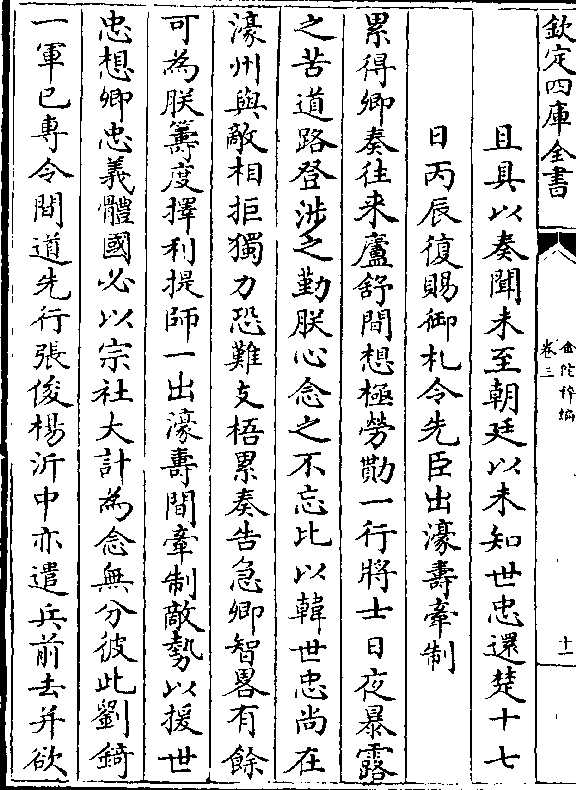 欽定四庫全書
金陀稡編
卷三
十一
且具以奏聞未至朝廷以未知世忠還楚十七
日丙辰復賜御札令先臣出濠壽牽制
累得卿奏往来廬舒間想極勞勩一行將士日夜暴露
之苦道路登涉之勤朕心念之不忘比以韓世忠尚在
濠州與敵相拒獨力恐難支梧累奏告急卿智畧有餘
可為朕籌度擇利提師一出濠壽間牽制敵勢以援世
忠想卿忠義體國必以宗社大計為念無分彼此劉錡
一軍已專令間道先行張俊楊沂中亦遣兵前去并欲